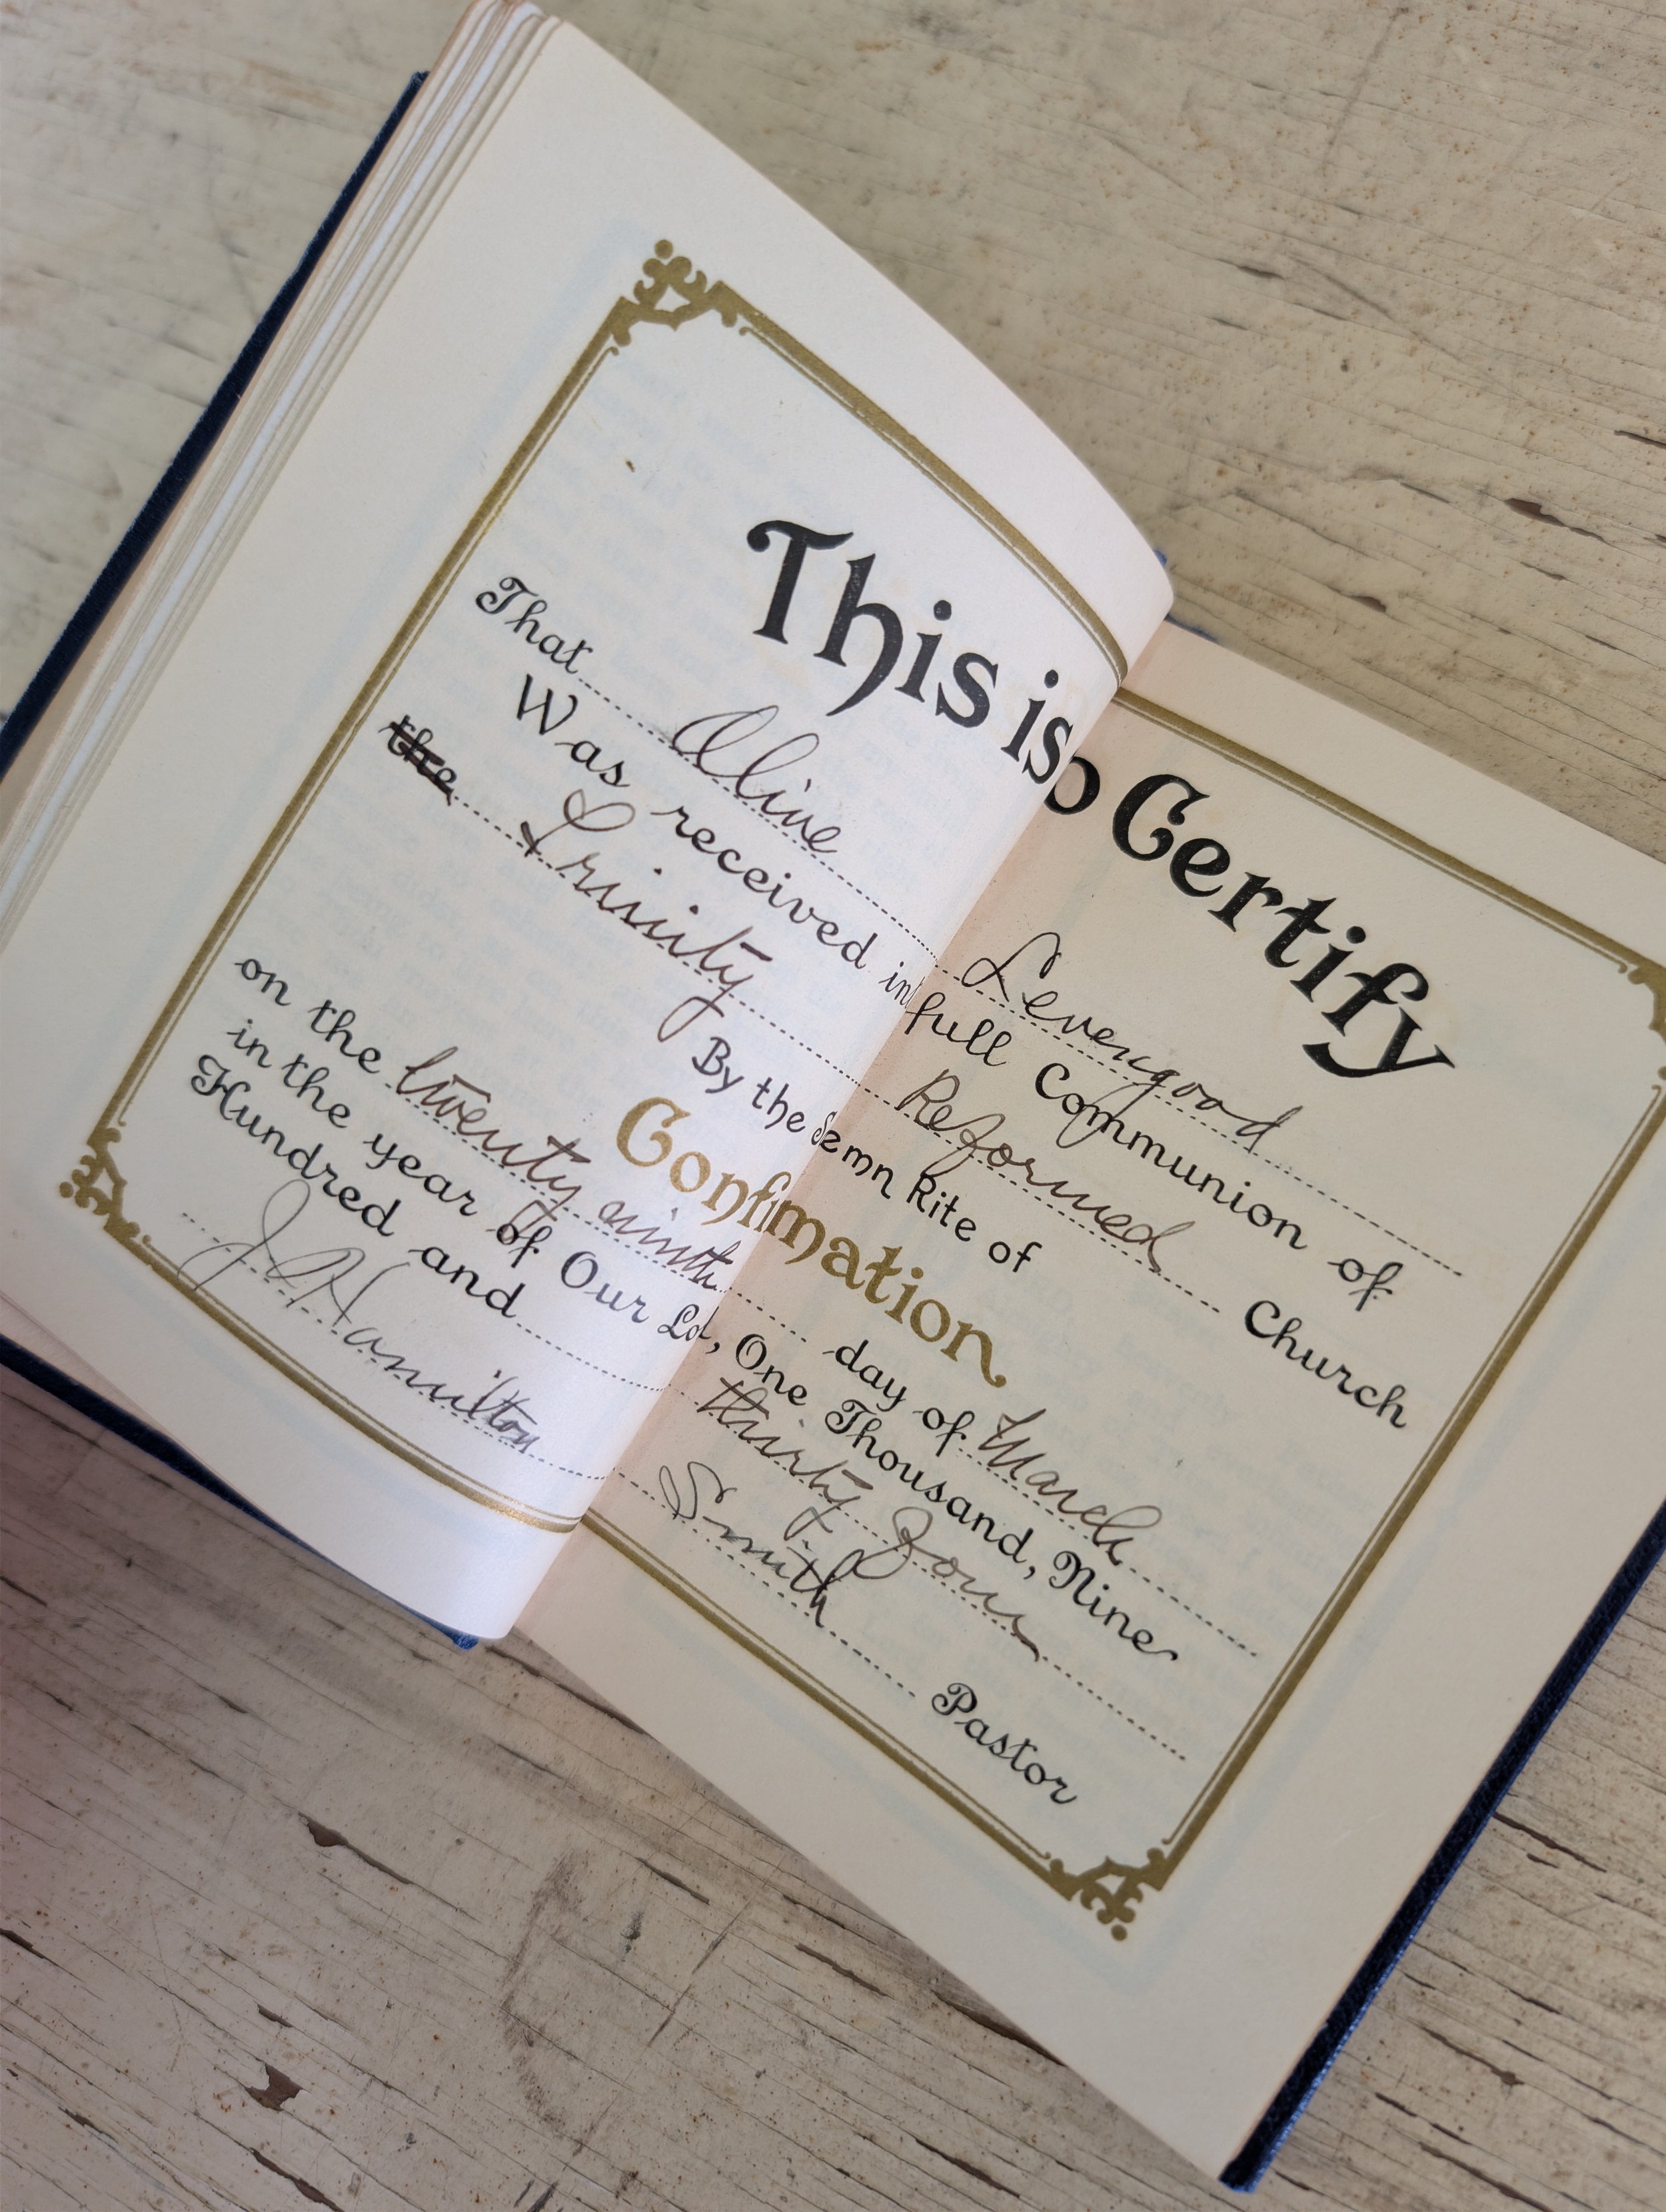 This is to Certify
That Aline Levengood
Was received in full Communion of
the Trinity Reformed Church
By the Solemn Rite of
Confirmation
on the twenty ninth day of March
in the year of Our Lord, One Thousand, Nine
Hundred and thirty Four
J Hamilton Smith Pastor